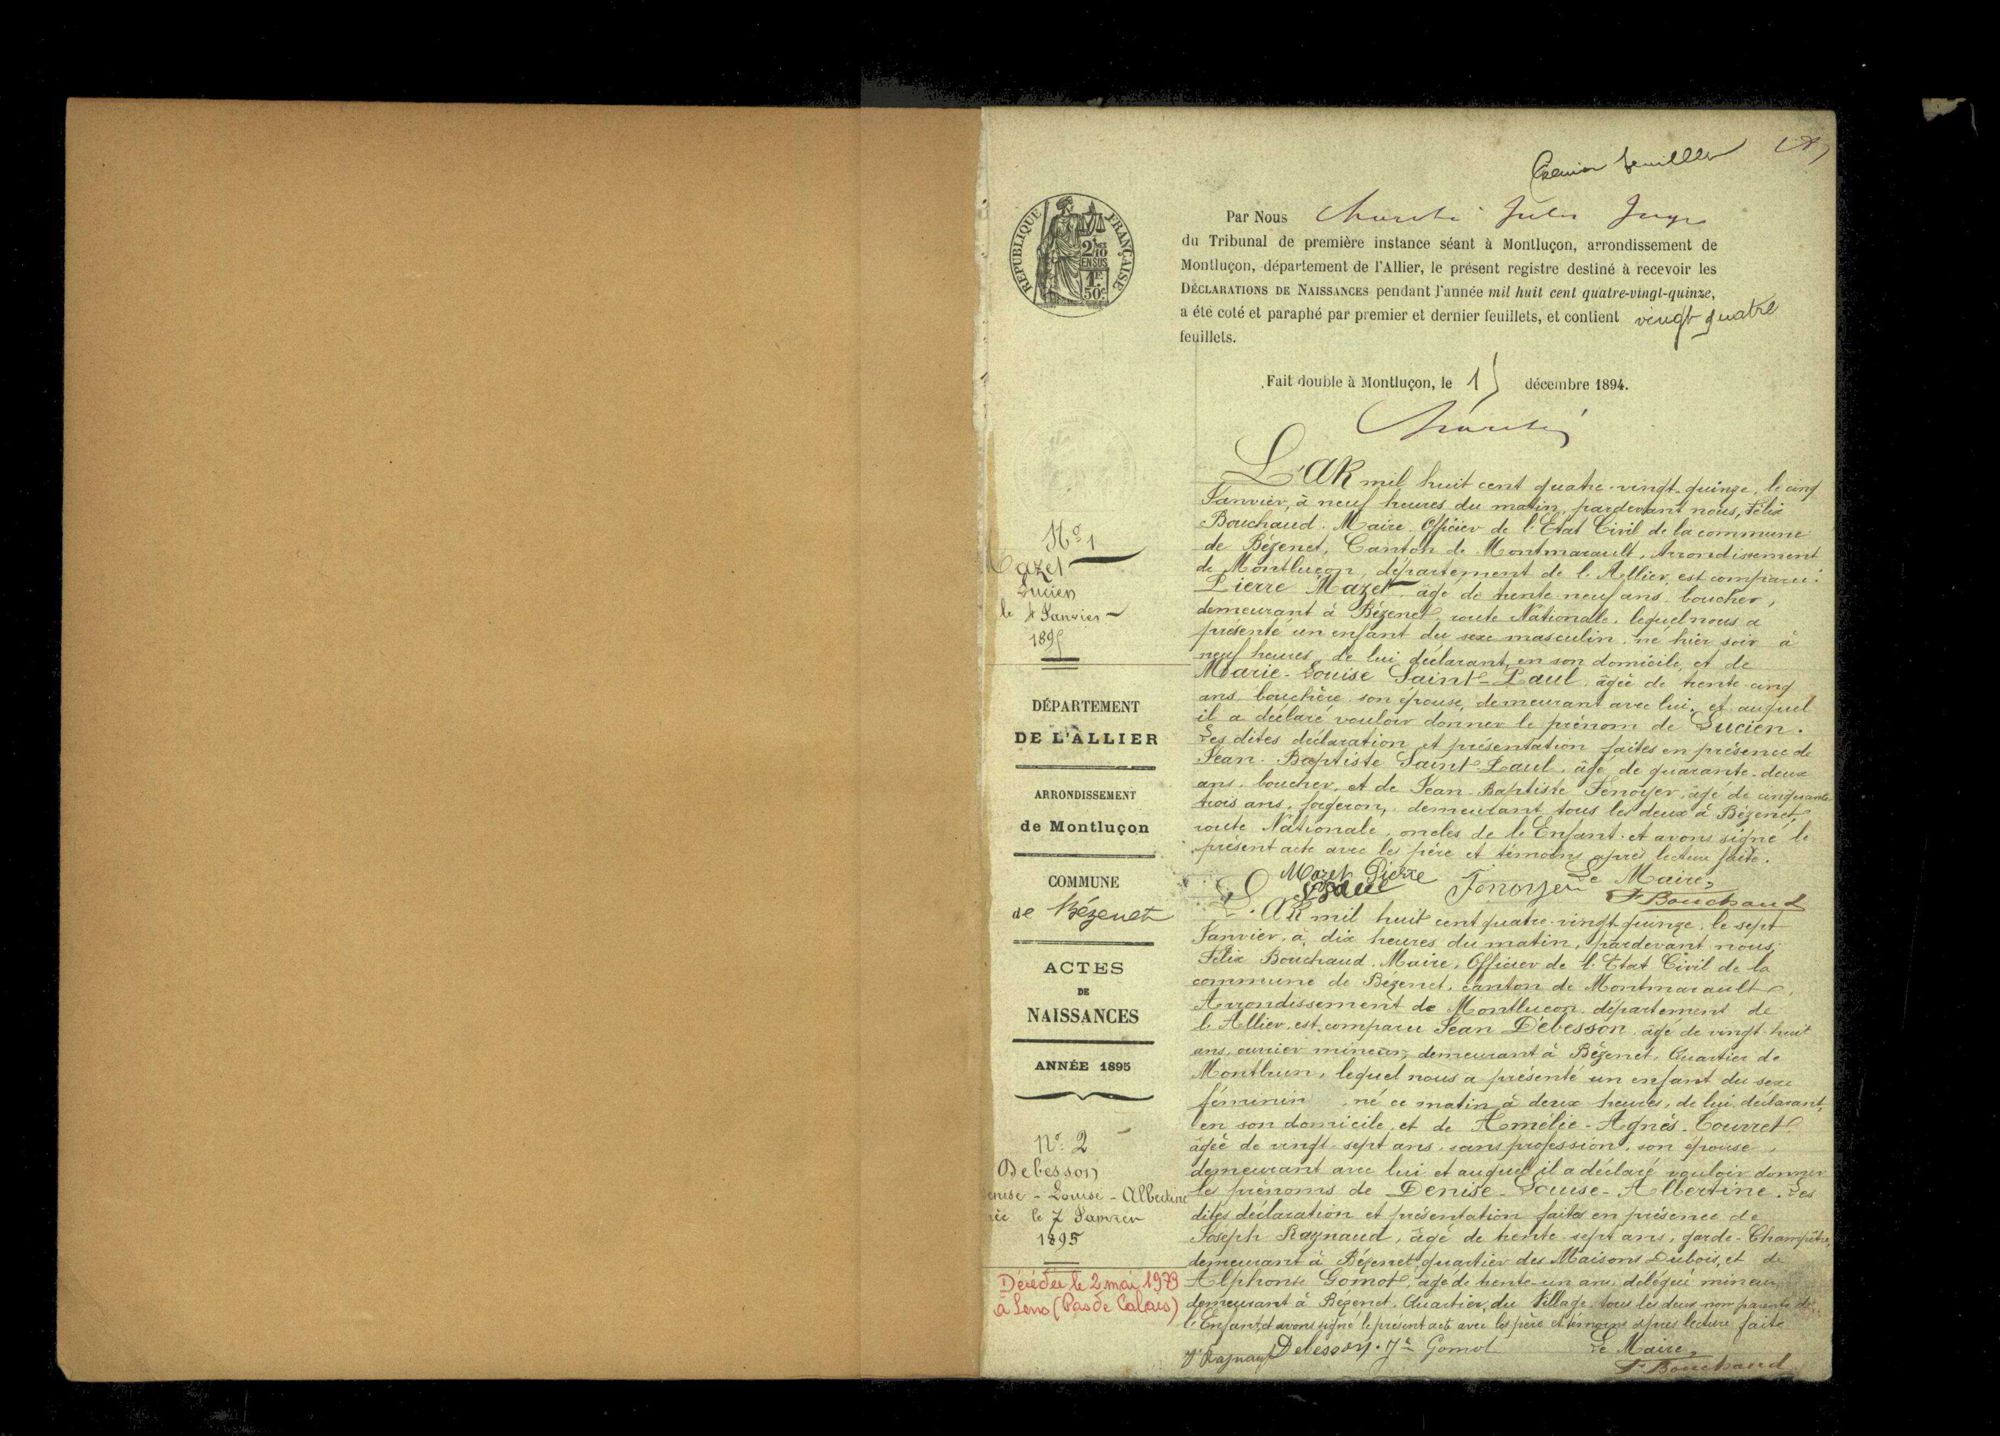 Premier feuillet
RÉPUBLIQUE FRANÇAISE
2/10
EN SUS
1F
50c
Par Nous Jules Juge
du Tribunal de première instance séant à Montluçon, arrondissement de
Montluçon, département de l'Allier, le présent registre destiné à recevoir les
DÉCLARATIONS DE NAISSANCES pendant l'année mil huit cent quatre-vingt-quinze,
a été coté et paraphé par premier et dernier feuillets, et contient vingt quatre
feuillets.
Fait double à Montluçon, le 15 décembre 1894.
No 1
Mazet
Lucien
le 4 Janvier
1895
L'AN mil huit cent quatre-vingt-quinze, le cinq
Janvier, à neuf heures du matin, pardevant nous, Félix
Bouchaud, Maire, Officier de l'Etat Civil de la commune
de Bézenet, Canton de Montmarault, Arrondissement
de Montluçon, département de l'Allier, est comparu:
Pierre Mazet, âgé de trente-neuf ans, boucher,
demeurant à Bézenet, route Nationale, lequel nous a
présenté un enfant du sexe masculin, né hier soir à
neuf heures, de lui déclarant, en son domicile, et de
Marie-Louise Saint-Paul, âgée de trente-cinq
ans, bouchère, son épouse, demeurant avec lui, et auquel
il a déclaré vouloir donner le prénom de Lucien.
Les dites déclaration et présentation faites en présence de
Jean-Baptiste Saint-Paul, âgé de quarante-deux
ans, boucher, et de Jean-Baptiste Fenoyer, âgé de cinquante
trois ans, forgeron, demeurant tous les deux à Bézenet,
route Nationale, oncles de l'Enfant et avons signé le
présent acte avec les père et témoins après lecture faite.
Mazet Pierre
Fenoyer Le Maire,
F. Bouchaud
DÉPARTEMENT
DE L'ALLIER
ARRONDISSEMENT
de Montluçon
COMMUNE
de Bézenet
ACTES
DE
NAISSANCES
ANNÉE 1895
No 2
Debesson
Denise-Louise-Albertine
née le 7 Janvier
1895
Décédée le 2 mai 1973
à Lens (Pas de Calais)
L'AN mil huit cent quatre-vingt-quinze, le sept
Janvier, à dix heures du matin, pardevant nous,
Félix Bouchaud, Maire, Officier de l'Etat Civil de la
commune de Bézenet, canton de Montmarault,
Arrondissement de Montluçon, département de
l'Allier, est comparu Jean Debesson, âgé de vingt-huit
ans, ouvrier mineur, demeurant à Bézenet, Quartier de
Montbrun, lequel nous a présenté un enfant du sexe
féminin, né ce matin à deux heures, de lui déclarant,
en son domicile, et de Amélie-Agnès Tourret
âgée de vingt-sept ans, sans profession, son épouse,
demeurant avec lui et auquel il a déclaré vouloir donner
les prénoms de Denise-Louise-Albertine. Les
dites déclaration et présentation faites en présence de
Joseph Raynaud, âgé de trente-sept ans, garde-Champêtre,
demeurant à Bézenet, quartier des Maisons Dubois, et de
Alphonse Gomot, âgé de trente-un ans, délégué mineur,
demeurant à Bézenet, Quartier du Village, tous les deux non parents de
l'Enfant, et avons signé le présent acte avec les père et témoins après lecture faite
Jh Raynaud Debesson Gomot Le Maire,
F. Bouchaud